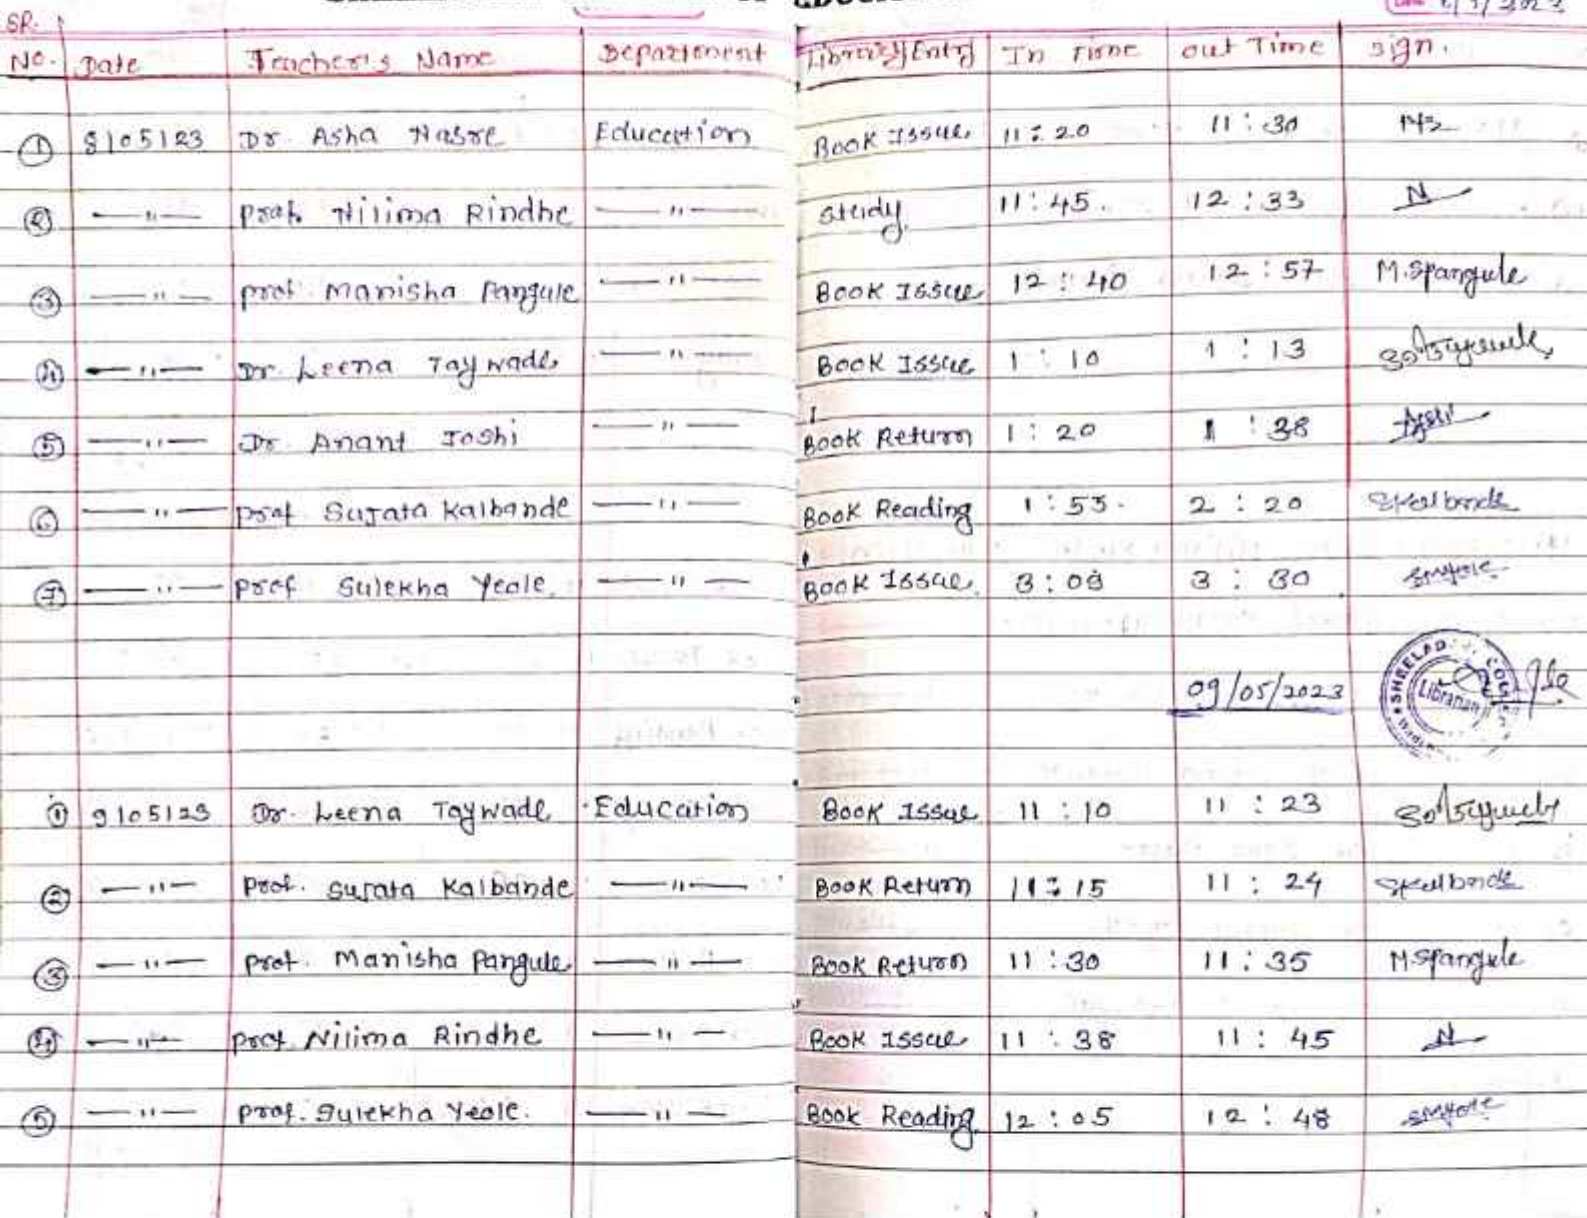 SR.
No. Date Teacher's Name Department Library Entry In Time out Time Sign.
① 8/05/23 Dr. Asha Nasre Education Book Issue 11:20 11:30
② —"— prof. Nilima Rindhe —"— Study 11:45. 12:33 N
③ —"— prof. Manisha Pangule —"— Book Issue 12:40 12:57 M.Spangule
④ —"— Dr. Leena Taywade —"— Book Issue 1:10 1:13
⑤ —"— Dr. Anant Joshi —"— Book Return 1:20 1:38
⑥ —"— prof Sujata Kalbande —"— Book Reading 1:53. 2:20 Skalbande
⑦ —"— prof Sulekha Yeole. —"— Book Issue. 3:09 3:30 smyole
09/05/2023
SHEELAD
Librarian
① 9/05/23 Dr. Leena Taywade Education Book Issue 11:10 11:23
② —"— prof. Surata Kalbande —"— Book Return 11:15 11:24 Skalbande
③ —"— prof. Manisha Pangule —"— Book Return 11:30 11:35 M.Spangule
④ —"— prof Nilima Rindhe —"— Book Issue 11:38 11:45 N
⑤ —"— prof. Sulekha Yeole. —"— Book Reading 12:05 12:48 smyole